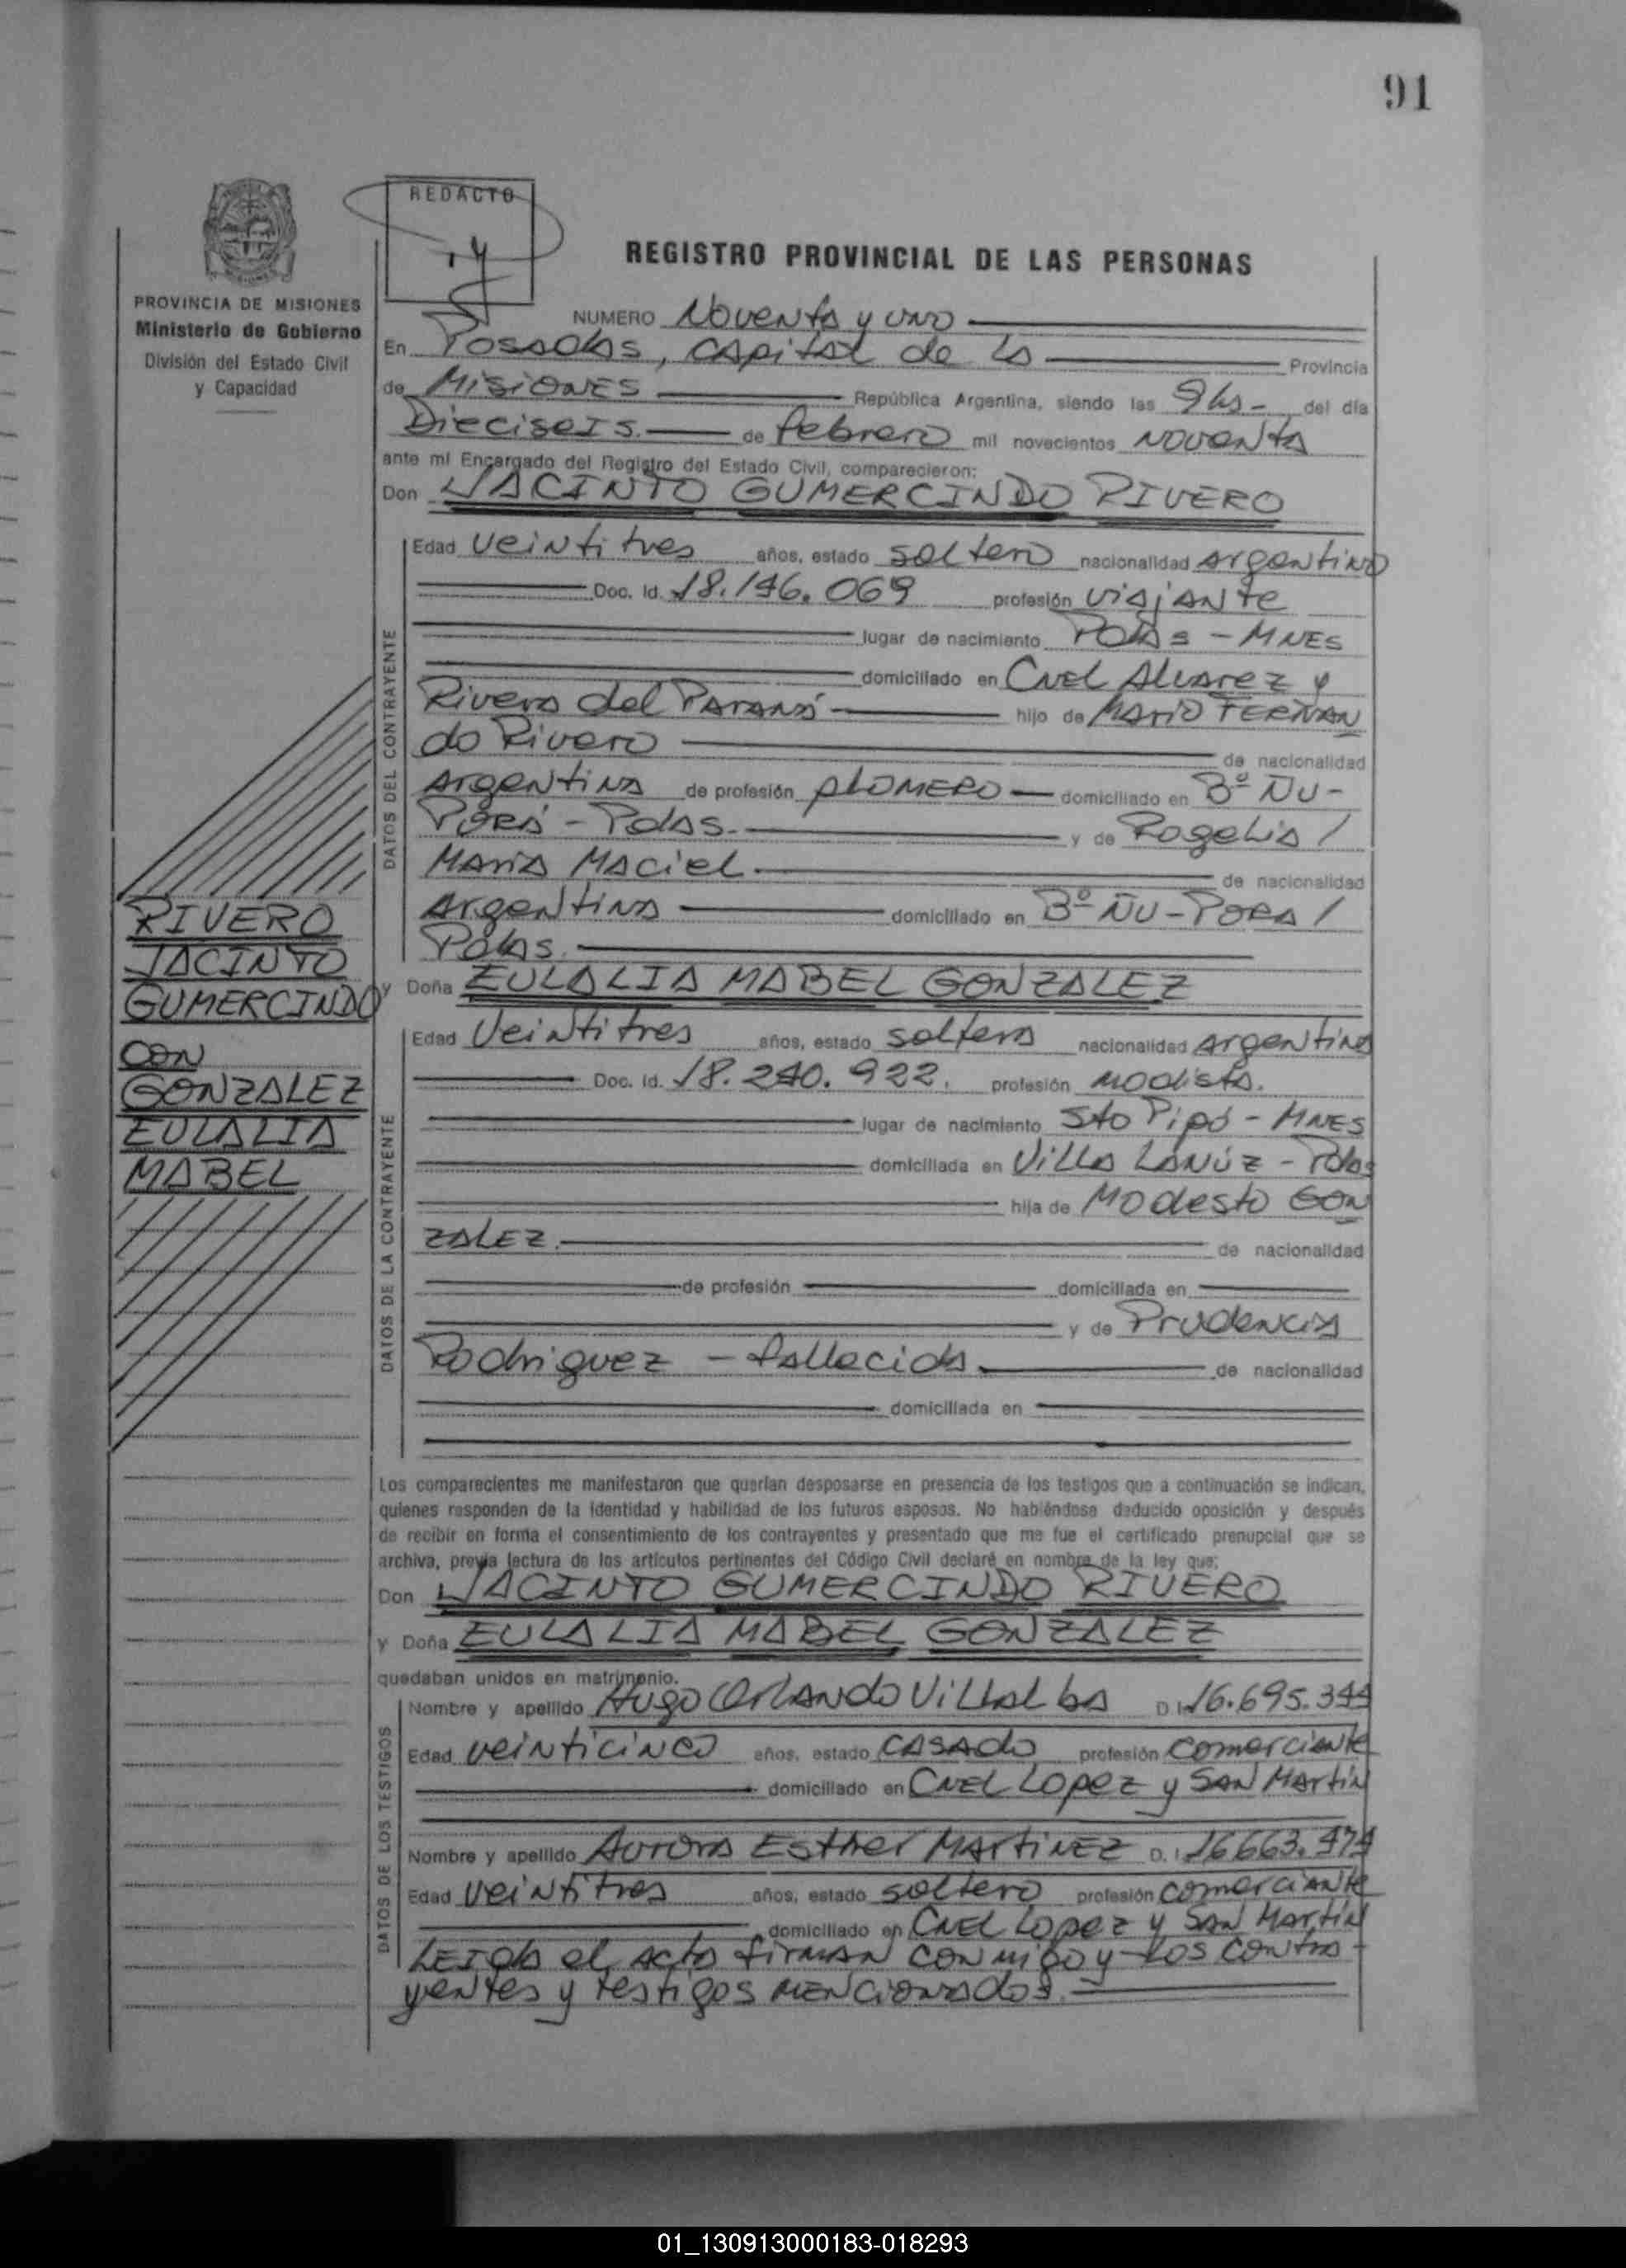 91
REDACTO
REGISTRO PROVINCIAL DE LAS PERSONAS
PROVINCIA DE MISIONES
Ministerio de Gobierno
División del Estado Civil
y Capacidad
NUMERO Noventa y uno
En Posadas, capital de la Provincia
de Misiones República Argentina, siendo las 9 hs- del día
Dieciseis. de febrero mil novecientos noventa
ante mí Encargado del Registro del Estado Civil, comparecieron:
Don JACINTO GUMERCINDO RIVERO
DATOS DEL CONTRAYENTE
Edad veintitres años, estado soltero nacionalidad argentino
Doc. Id. 18.146.069 profesión viajante
lugar de nacimiento Pdas - MNES
domiciliado en Cnel Alvarez y
Rivera del Paraná hijo de Mario Fernan
do Rivero de nacionalidad
Argentina de profesión plomero domiciliado en Bº Ñu-
Porá - Pdas. y de Rogelia /
Maria Maciel de nacionalidad
Argentina domiciliado en Bº Ñu-Pora /
Pdas.
RIVERO
JACINTO
GUMERCINDO
CON
GONZALEZ
EULALIA
MABEL
y Doña EULALIA MABEL GONZALEZ
DATOS DE LA CONTRAYENTE
Edad Veintitres años, estado soltera nacionalidad argentina
Doc. Id. 18.240.922. profesión modista.
lugar de nacimiento Sto Pipó - MNES
domiciliada en Villa Lanúz - Pdas
hija de Modesto Gon
zalez. de nacionalidad
de profesión domiciliada en
y de Prudencia
Rodriguez - fallecida de nacionalidad
domiciliada en
Los comparecientes me manifestaron que querían desposarse en presencia de los testigos que a continuación se indican,
quienes responden de la identidad y habilidad de los futuros esposos. No habiéndose deducido oposición y después
de recibir en forma el consentimiento de los contrayentes y presentado que me fue el certificado prenupcial que se
archiva, previa lectura de los artículos pertinentes del Código Civil declaré en nombre de la ley que:
Don JACINTO GUMERCINDO RIVERO
y Doña EULALIA MABEL GONZALEZ
quedaban unidos en matrimonio.
DATOS DE LOS TESTIGOS
Nombre y apellido Hugo Orlando Villalba D.I. 16.695.344
Edad veinticinco años, estado casado profesión comerciante
domiciliado en Cnel Lopez y San Martin
Nombre y apellido Aurora Esther Martinez D.I. 16.663.474
Edad veintitres años, estado soltero profesión comerciante
domiciliado en Cnel Lopez y San Martin
Leida el acta firman conmigo y los contra-
yentes y testigos mencionados.
01_130913000183-018293